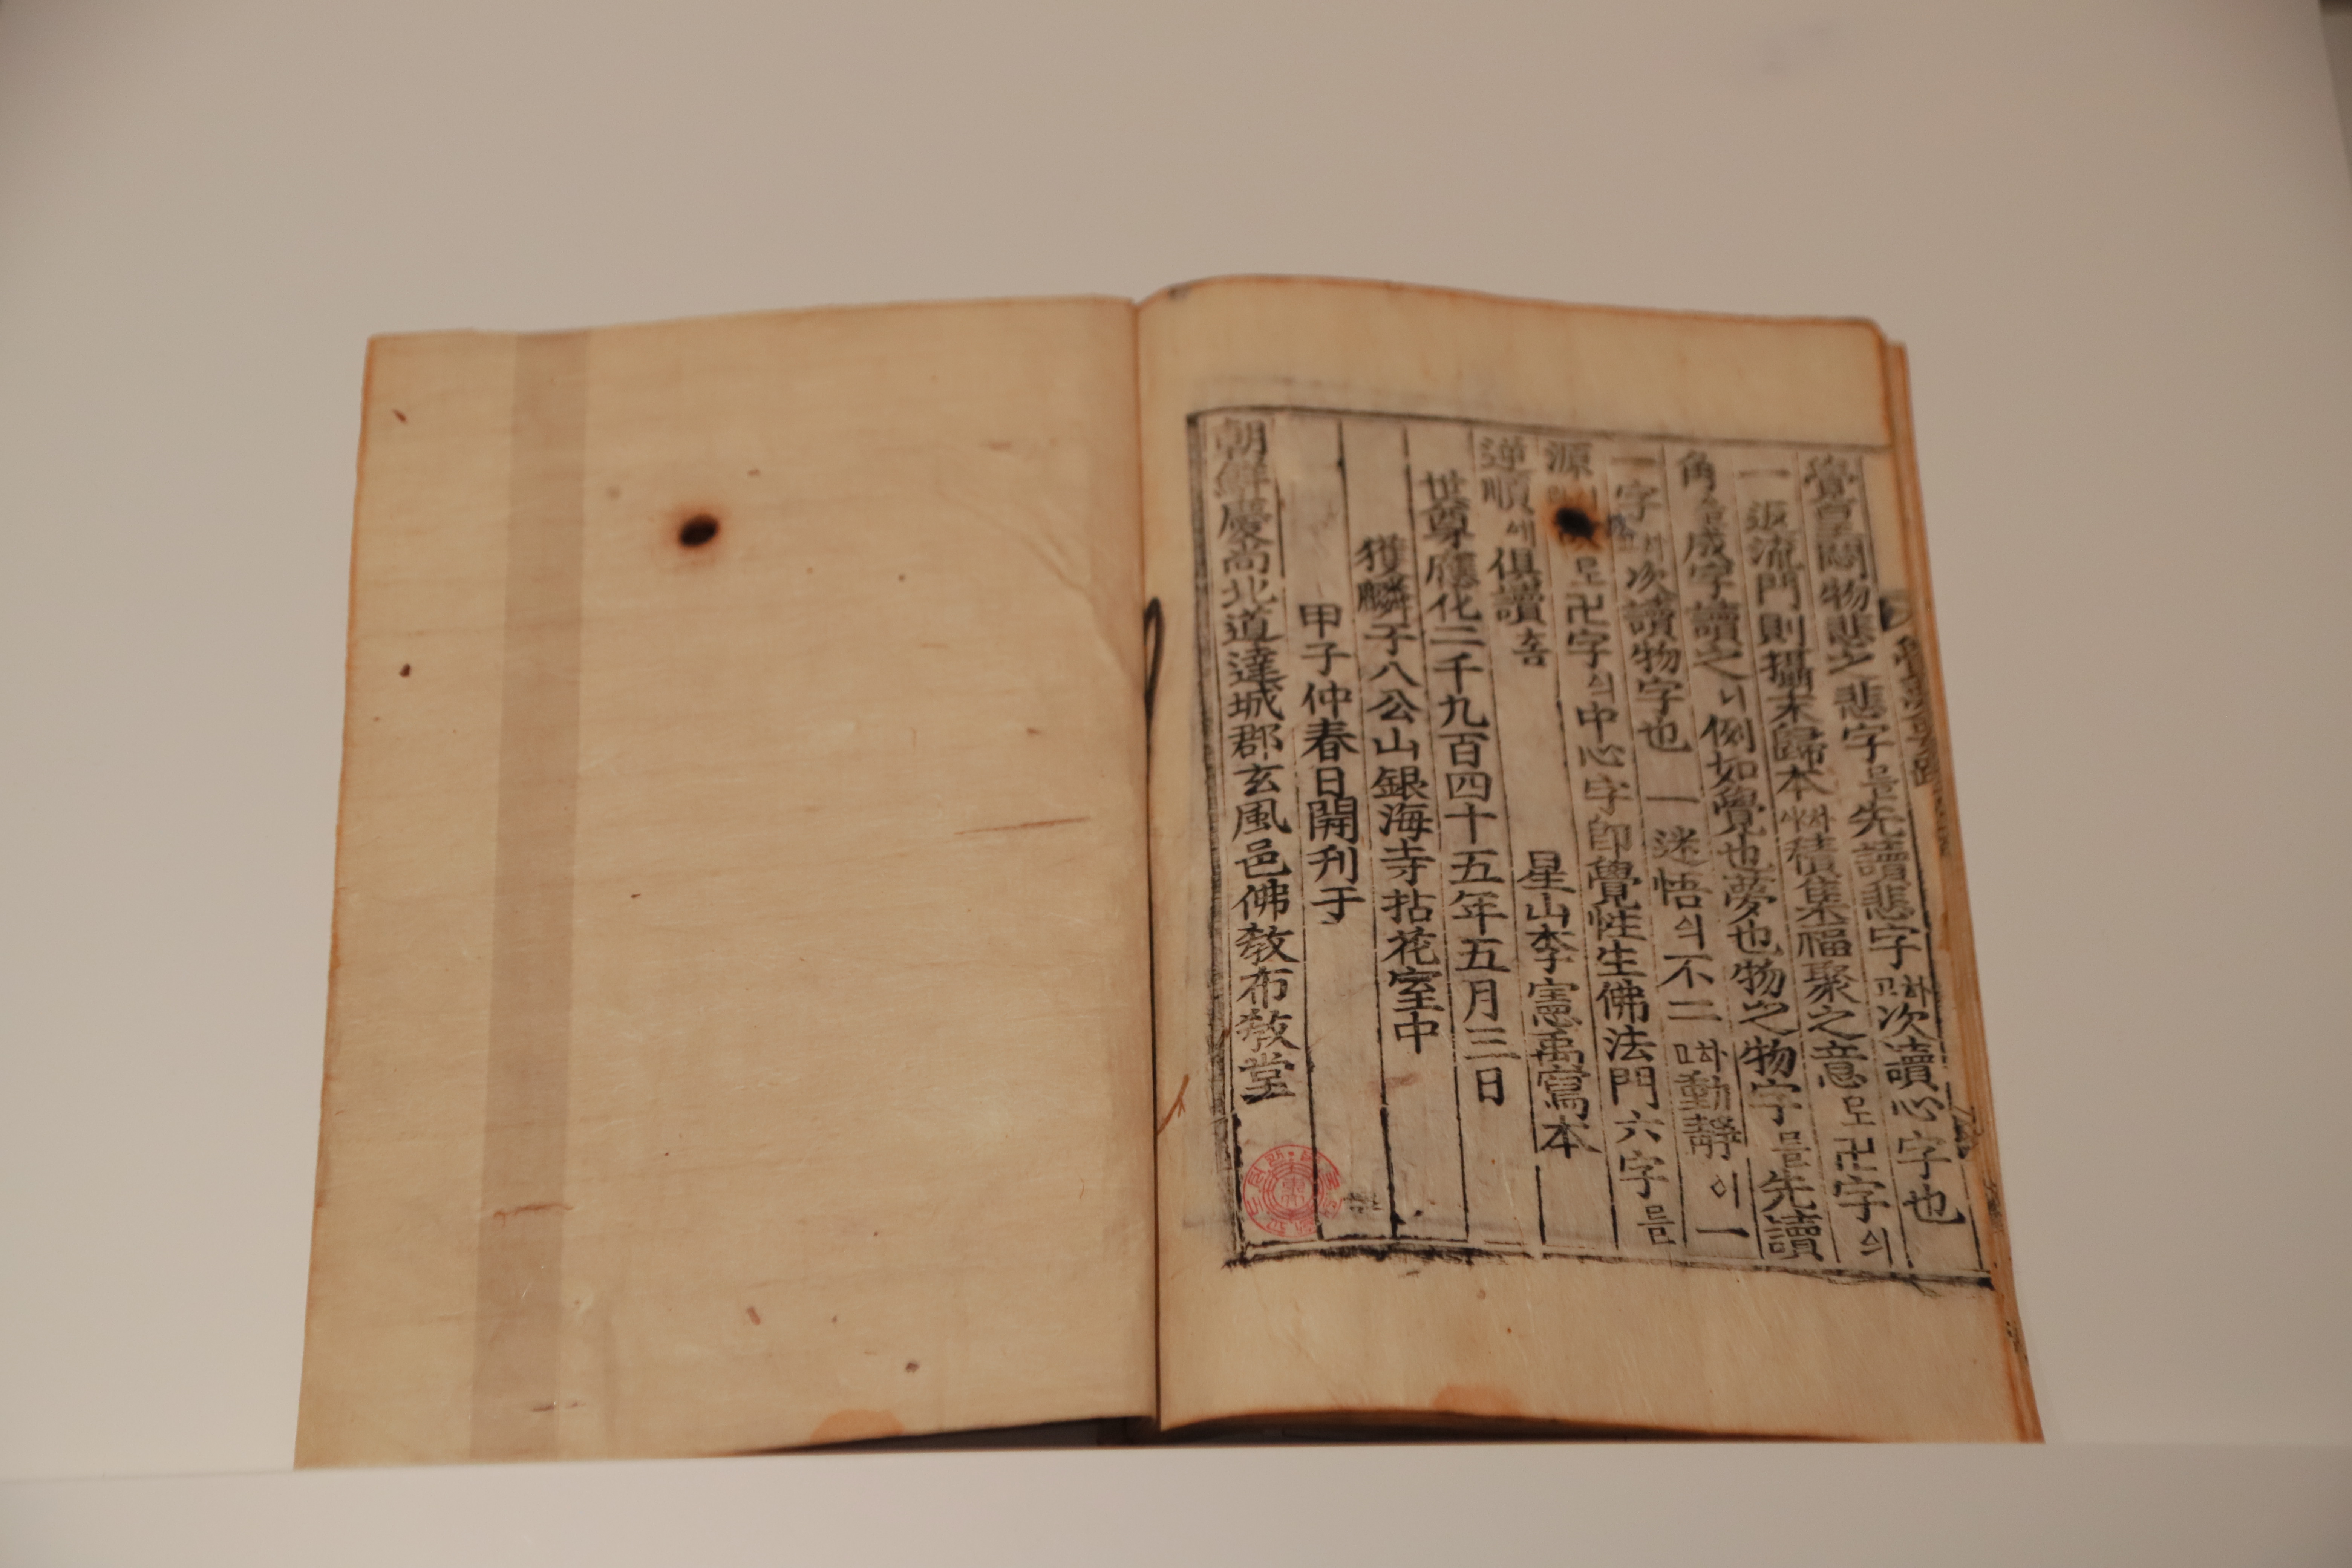 覺言 關物悲之悲字를先讀悲字고하次讀心字也
一返流門則攝末歸本사하積集福聚之意로卍字의
角 成字讀之니例如覺也夢也物之物字를先讀
一字 次讀物字也 一迷悟의不二며하動靜이一
源 로卍字의中心字卽覺性生佛法門六字를
逆順에俱讀홈 星山李憲禹寫本
世尊應化二千九百四十五年五月三日
獲麟于八公山銀海寺拈花室中
甲子仲春日開刋于
朝鮮慶尚北道達城郡玄風邑佛敎布敎堂